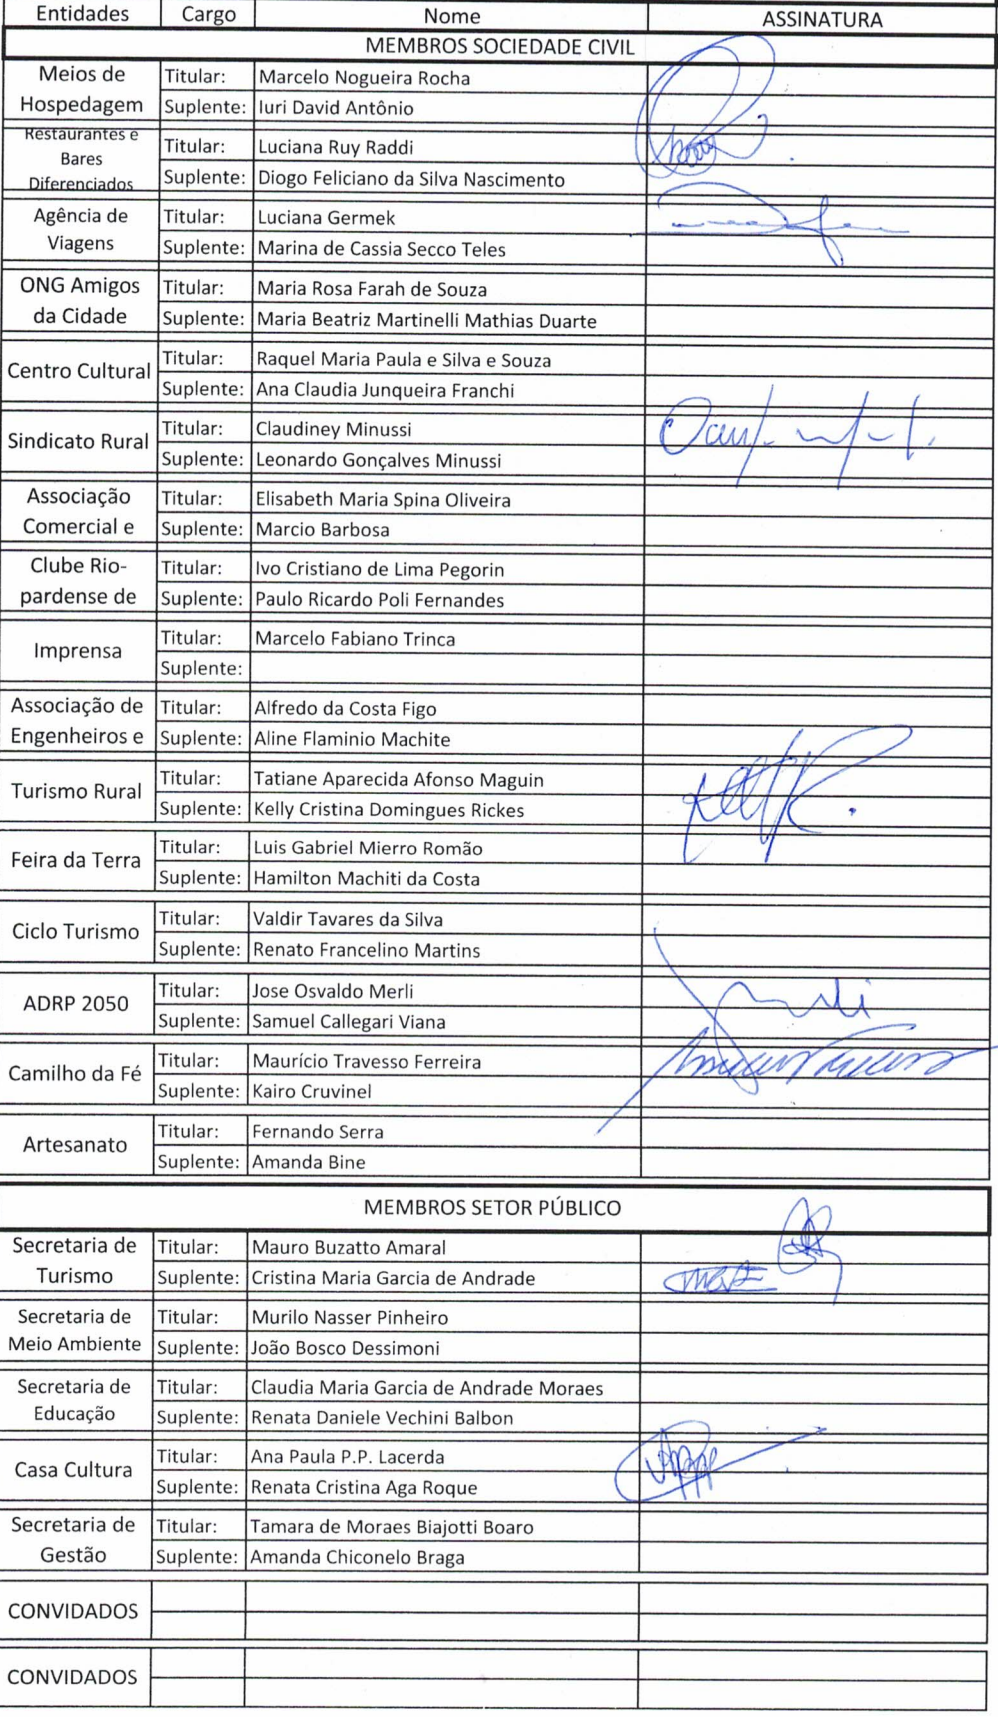 Entidades Cargo Nome ASSINATURA
MEMBROS SOCIEDADE CIVIL
Meios de Hospedagem
Titular: Marcelo Nogueira Rocha
Suplente: Iuri David Antônio
Restaurantes e Bares Diferenciados
Titular: Luciana Ruy Raddi
Suplente: Diogo Feliciano da Silva Nascimento
Agência de Viagens
Titular: Luciana Germek
Suplente: Marina de Cassia Secco Teles
ONG Amigos da Cidade
Titular: Maria Rosa Farah de Souza
Suplente: Maria Beatriz Martinelli Mathias Duarte
Centro Cultural
Titular: Raquel Maria Paula e Silva e Souza
Suplente: Ana Claudia Junqueira Franchi
Sindicato Rural
Titular: Claudiney Minussi
Suplente: Leonardo Gonçalves Minussi
Associação Comercial e
Titular: Elisabeth Maria Spina Oliveira
Suplente: Marcio Barbosa
Clube Rio-pardense de
Titular: Ivo Cristiano de Lima Pegorin
Suplente: Paulo Ricardo Poli Fernandes
Imprensa
Titular: Marcelo Fabiano Trinca
Suplente:
Associação de Engenheiros e
Titular: Alfredo da Costa Figo
Suplente: Aline Flaminio Machite
Turismo Rural
Titular: Tatiane Aparecida Afonso Maguin
Suplente: Kelly Cristina Domingues Rickes
Feira da Terra
Titular: Luis Gabriel Mierro Romão
Suplente: Hamilton Machiti da Costa
Ciclo Turismo
Titular: Valdir Tavares da Silva
Suplente: Renato Francelino Martins
ADRP 2050
Titular: Jose Osvaldo Merli
Suplente: Samuel Callegari Viana
Camilho da Fé
Titular: Maurício Travesso Ferreira
Suplente: Kairo Cruvinel
Artesanato
Titular: Fernando Serra
Suplente: Amanda Bine
MEMBROS SETOR PÚBLICO
Secretaria de Turismo
Titular: Mauro Buzatto Amaral
Suplente: Cristina Maria Garcia de Andrade
Secretaria de Meio Ambiente
Titular: Murilo Nasser Pinheiro
Suplente: João Bosco Dessimoni
Secretaria de Educação
Titular: Claudia Maria Garcia de Andrade Moraes
Suplente: Renata Daniele Vechini Balbon
Casa Cultura
Titular: Ana Paula P.P. Lacerda
Suplente: Renata Cristina Aga Roque
Secretaria de Gestão
Titular: Tamara de Moraes Biajotti Boaro
Suplente: Amanda Chiconelo Braga
CONVIDADOS
CONVIDADOS